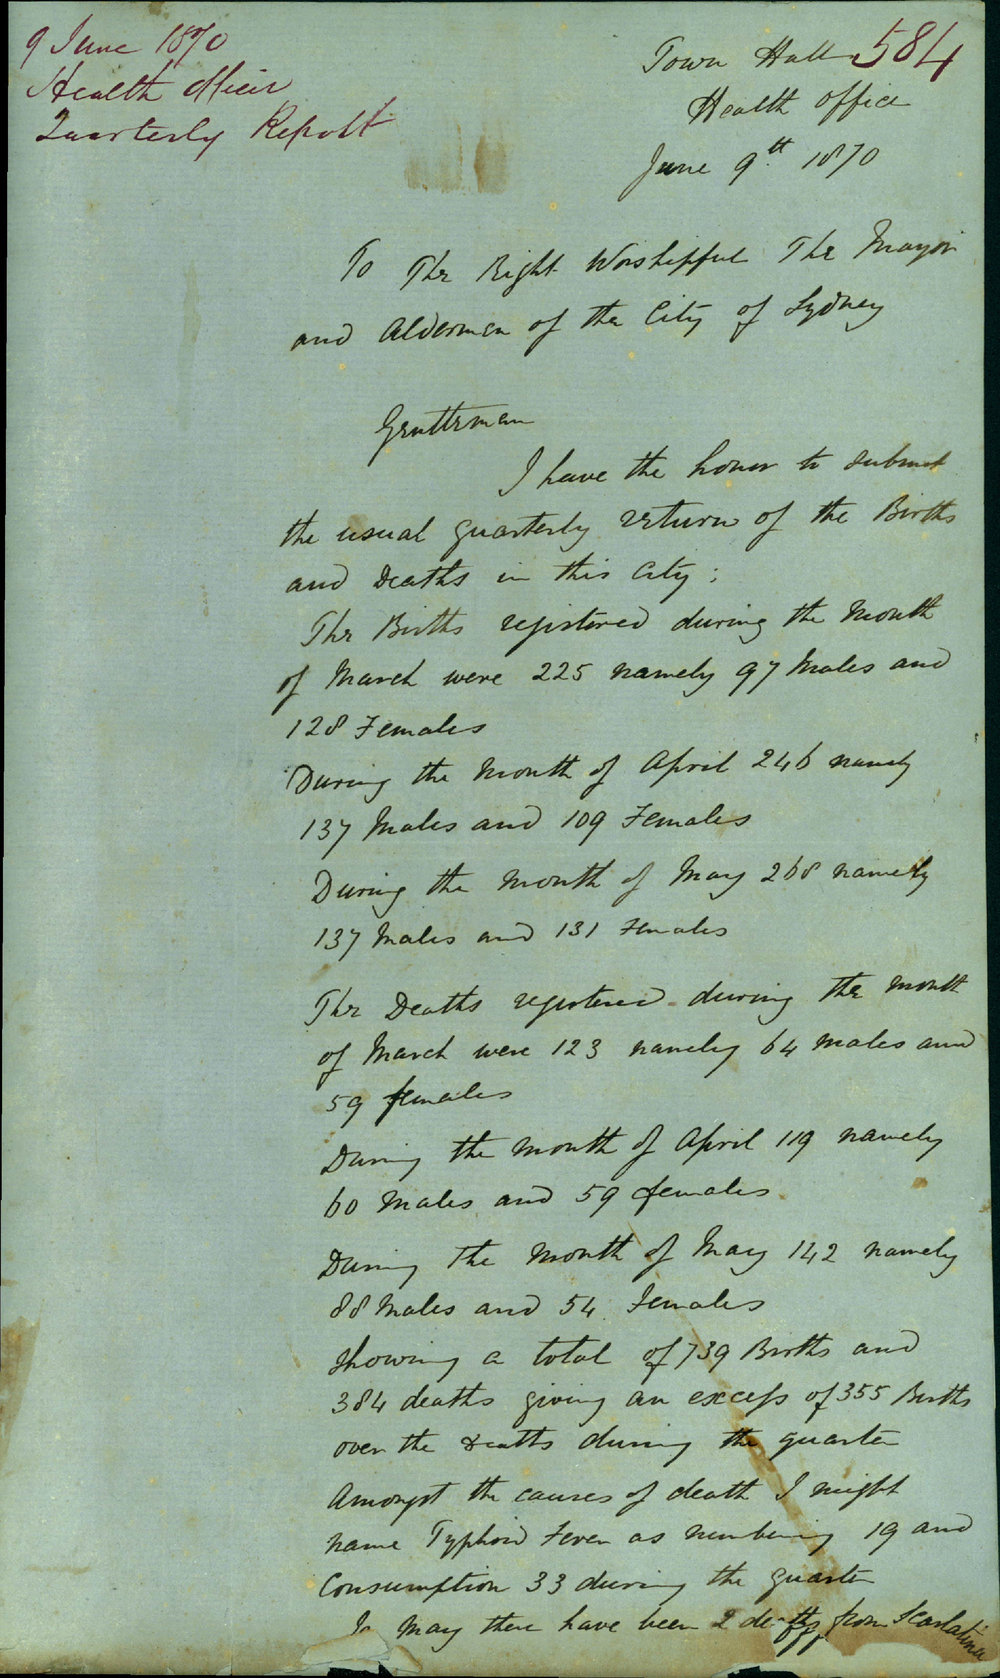 9 June 1870
Health Officer
Quarterly Report
584
Town Hall
Health Office
June 9th 1870
To The Right Worshipful The Mayor
and Aldermen of the City of Sydney
Gentlemen
I have the honor to submit
the usual quarterly return of the Births
and Deaths in this City;
The Births registered during the Month
of March were 225 namely 97 Males and
128 Females
During the Month of April 246 namely
137 Males and 109 Females
During the Month of May 268 namely
137 Males and 131 Females
The Deaths registered during the Month
of March were 123 namely 64 males and
59 females
During the month of April 119 namely
60 Males and 59 females
During the Month of May 142 namely
88 Males and 54 Females
Showing a total of 739 Births and
384 deaths giving an excess of 355 Births
over the deaths during the quarter
Amongst the causes of death I might
name Typhoid Fever as numbering 19 and
Consumption 33 during the quarter
In May there have been 2 deaths from Scarlatina